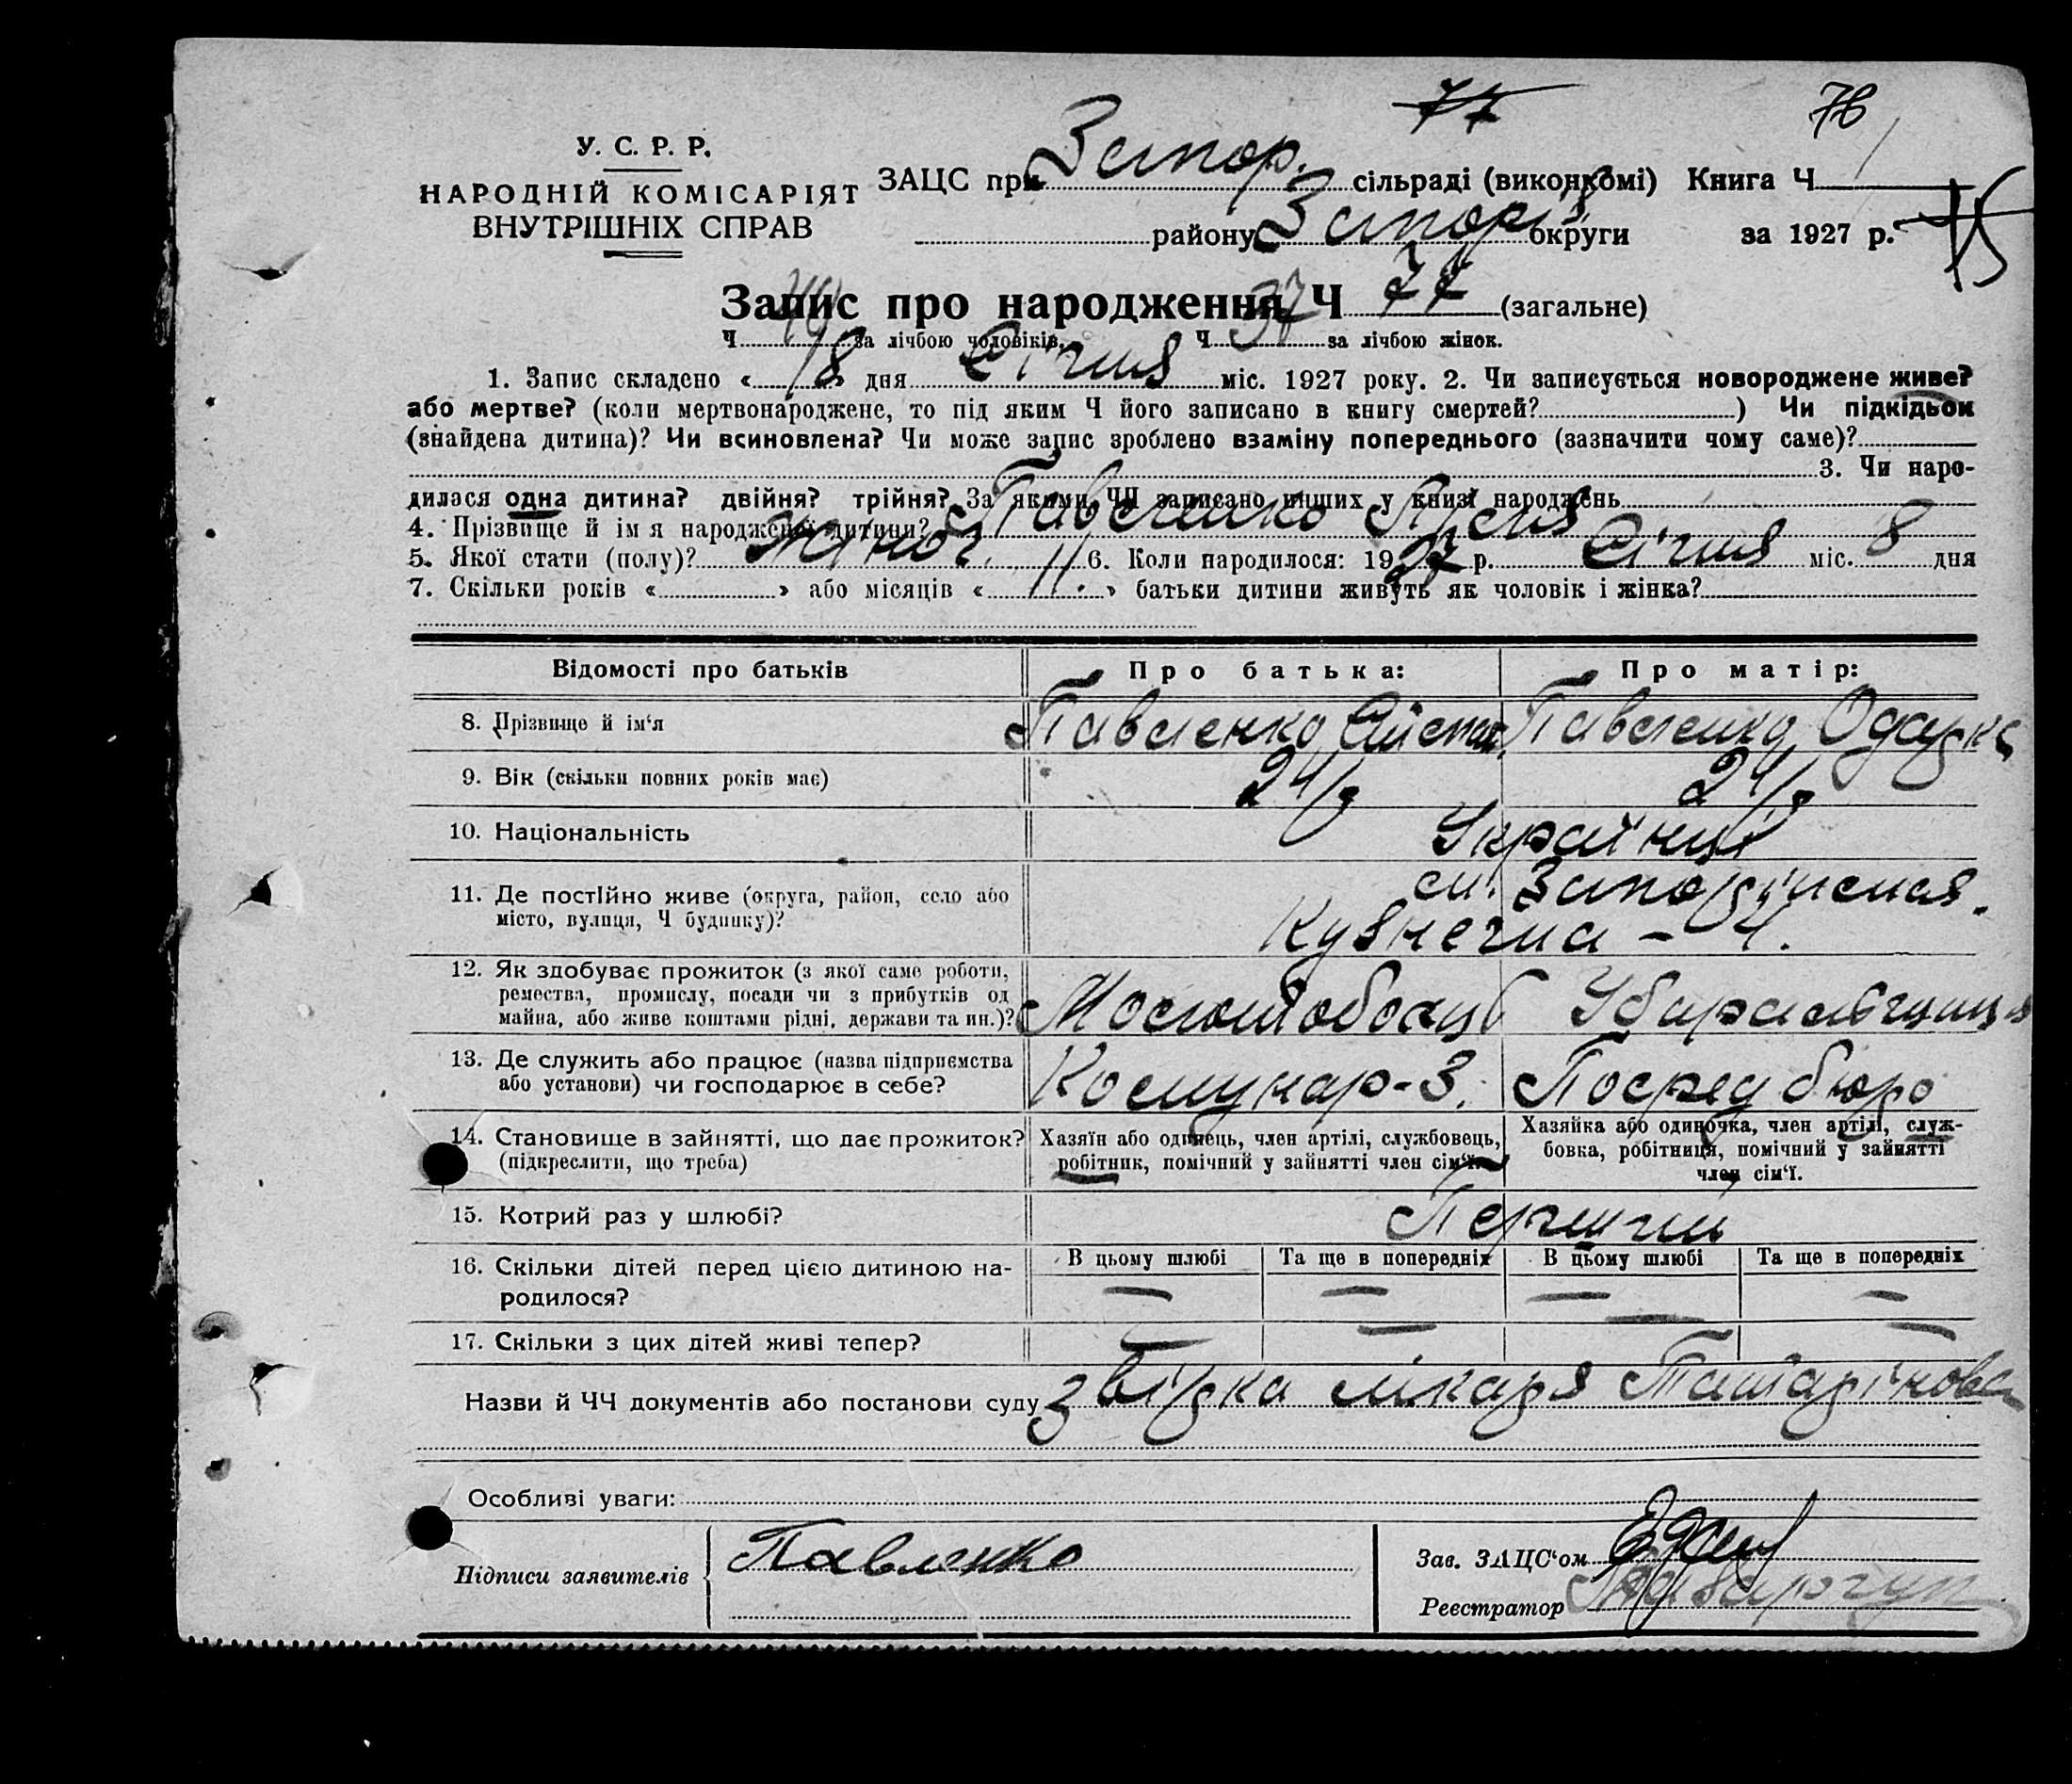 77 76
У. С. Р. Р.
НАРОДНІЙ КОМІСАРІЯТ
ВНУТРІШНІХ СПРАВ
ЗАЦС при Запор. сільраді (виконкомі) Книга Ч 1
району Запор. округи за 1927 р. 75
Запис про народження Ч 77 (загальне)
Ч 40 за лічбою чоловіків. Ч 37 за лічбою жінок.
1. Запис складено « 18 » дня Січня міс. 1927 року. 2. Чи записується новороджене живе?
або мертве? (коли мертвонароджене, то під яким Ч його записано в книгу смертей? ) Чи підкідьок
(знайдена дитина)? Чи всиновлена? Чи може запис зроблено взаміну попереднього (зазначити чому саме)?
3. Чи наро-
дилася одна дитина? двійня? трійня? За якими ЧЧ записано инших у книзі народжень
4. Прізвище й ім я народженої дитини? Павленко
5. Якої стати (полу)? Жіноч. 6. Коли народилося: 1927 р. Січня міс. 8 дня
7. Скільки років « » або місяців « 11. » батьки дитини живуть як чоловік і жінка?
Відомості про батьків Про батька: Про матір:
8. Прізвище й ім‘я Павленко Павленко Одарка
9. Вік (скільки повних років має) 24/р 24/р
10. Національність Українці
11. Де постійно живе (округа, район, село або
місто, вулиця, Ч будинку)?
Кузнечна – 4.
12. Як здобуває прожиток (з якої саме роботи,
ремества, промислу, посади чи з прибутків од
майна, або живе коштами рідні, держави та ин.)?
13. Де служить або працює (назва підприємства
або установи) чи господарює в себе? Комунар-З. Посред бюро
14. Становище в зайнятті, що дає прожиток?
(підкреслити, що треба)
Хазяїн або одинець, член артілі, службовець,
робітник, помічний у зайнятті член сім‘ї.
Хазяйка або одиночка, член артілі, служ-
бовка, робітниця, помічний у зайнятті
член сім‘ї.
15. Котрий раз у шлюбі? Перший
16. Скільки дітей перед цією дитиною на-
родилося?
В цьому шлюбі Та ще в попередніх В цьому шлюбі Та ще в попередніх
— — — —
17. Скільки з цих дітей живі тепер? — — — —
Назви й ЧЧ документів або постанови суду Звідка лікаря Татарінова
Особливі уваги:
Підписи заявителів Павленко
Зав. ЗАЦС‘ом
Реєстратор